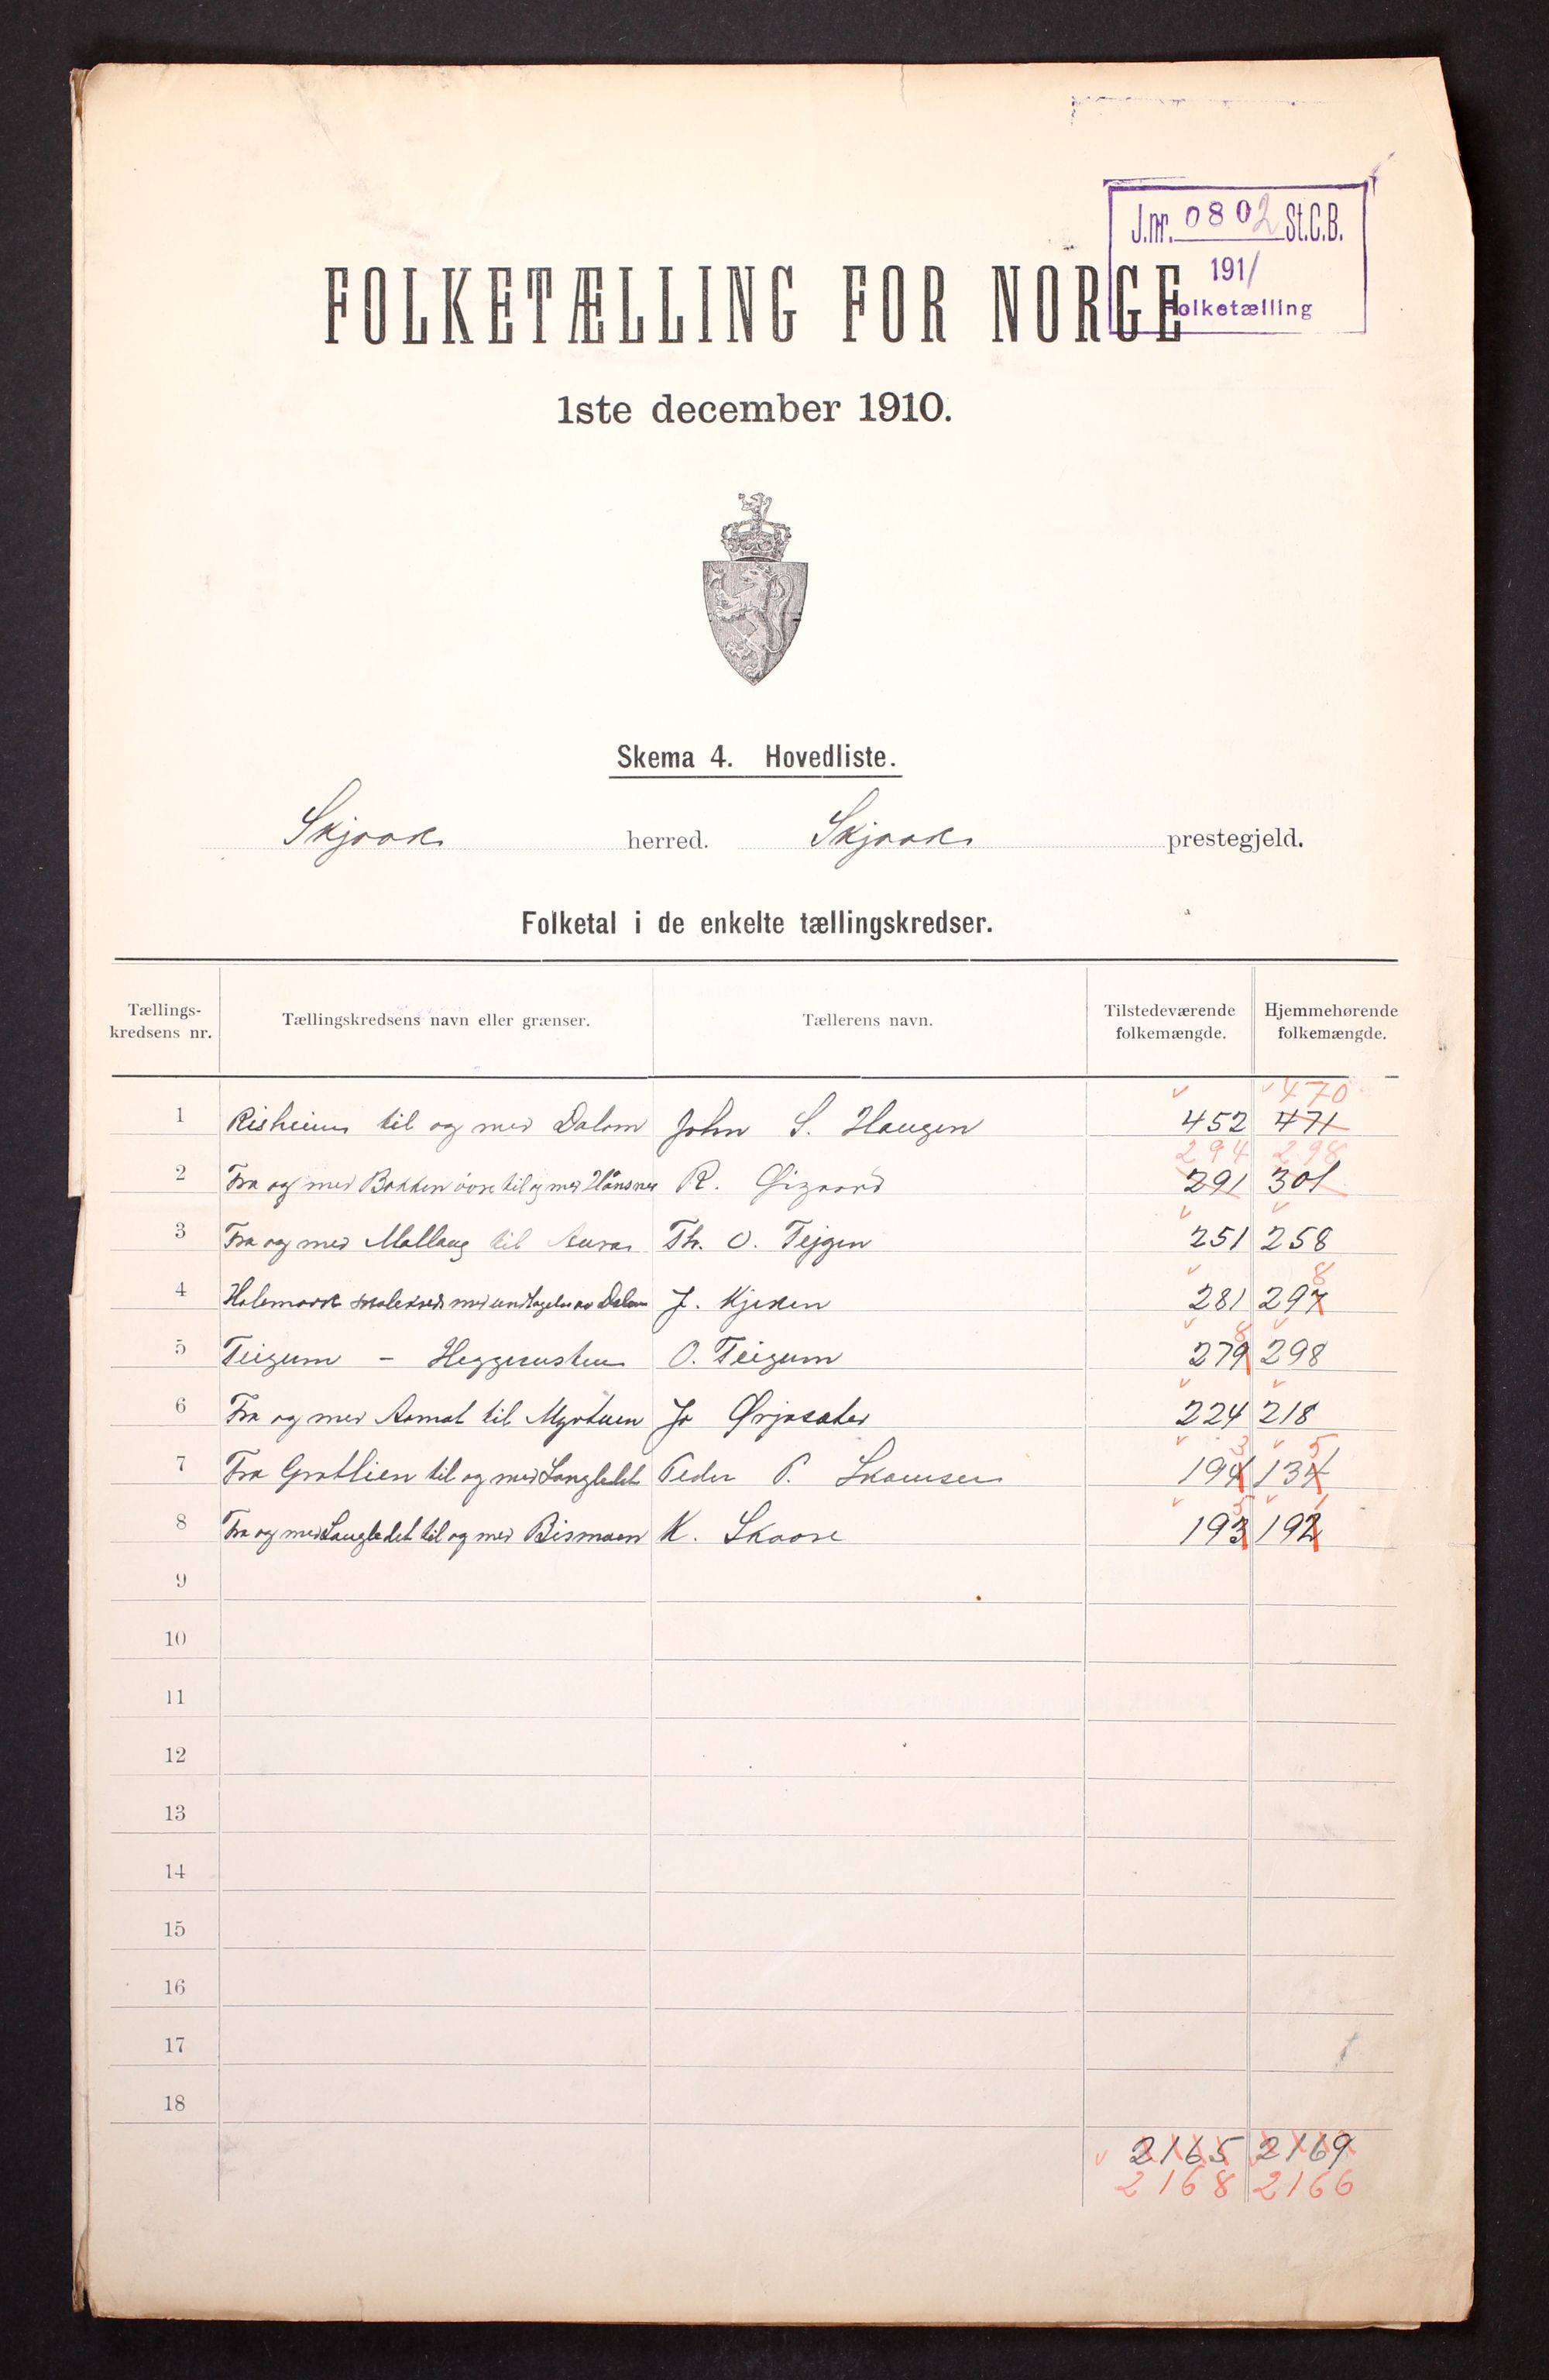 J.nr. 0802 St.C.B.
191/
Folketælling
FOLKETÆLLING FOR NORGE
1ste december 1910.
Skema 4. Hovedliste.
Skjaak herred. Skjaak prestegjeld.
Folketal i de enkelte tællingskredser.
Tællings-kredsens nr. Tællingskredsens navn eller grænser. Tællerens navn. Tilstedeværende folkemængde. Hjemmehørende folkemængde.
470
1 Risheim til og med Dalom John S. Haugen 452 471
294 298
2 Fra og med Bakken øvre til og med R. Øigaard 291 301
3 Fra og med Mallang til Auras Th. O. Tejgen 251 258
8
4 Holemork skolekreds med undtagelse av Dalom J. Kjeken 281 297
8
5 Teigum - Heggerusten O. Teigum 279 298
6 Fra og med Aamot til Myrtuen Jo Ørjasæter 224 218
3 5
7 Fra Grotlien til og med Langledet Peder P. Skamsar 194 134
5 1
8 Fra og med Langledet til og med Bismoen K. Skaare 193 192
9
10
11
12
13
14
15
16
17
18
2165 2169
2168 2166